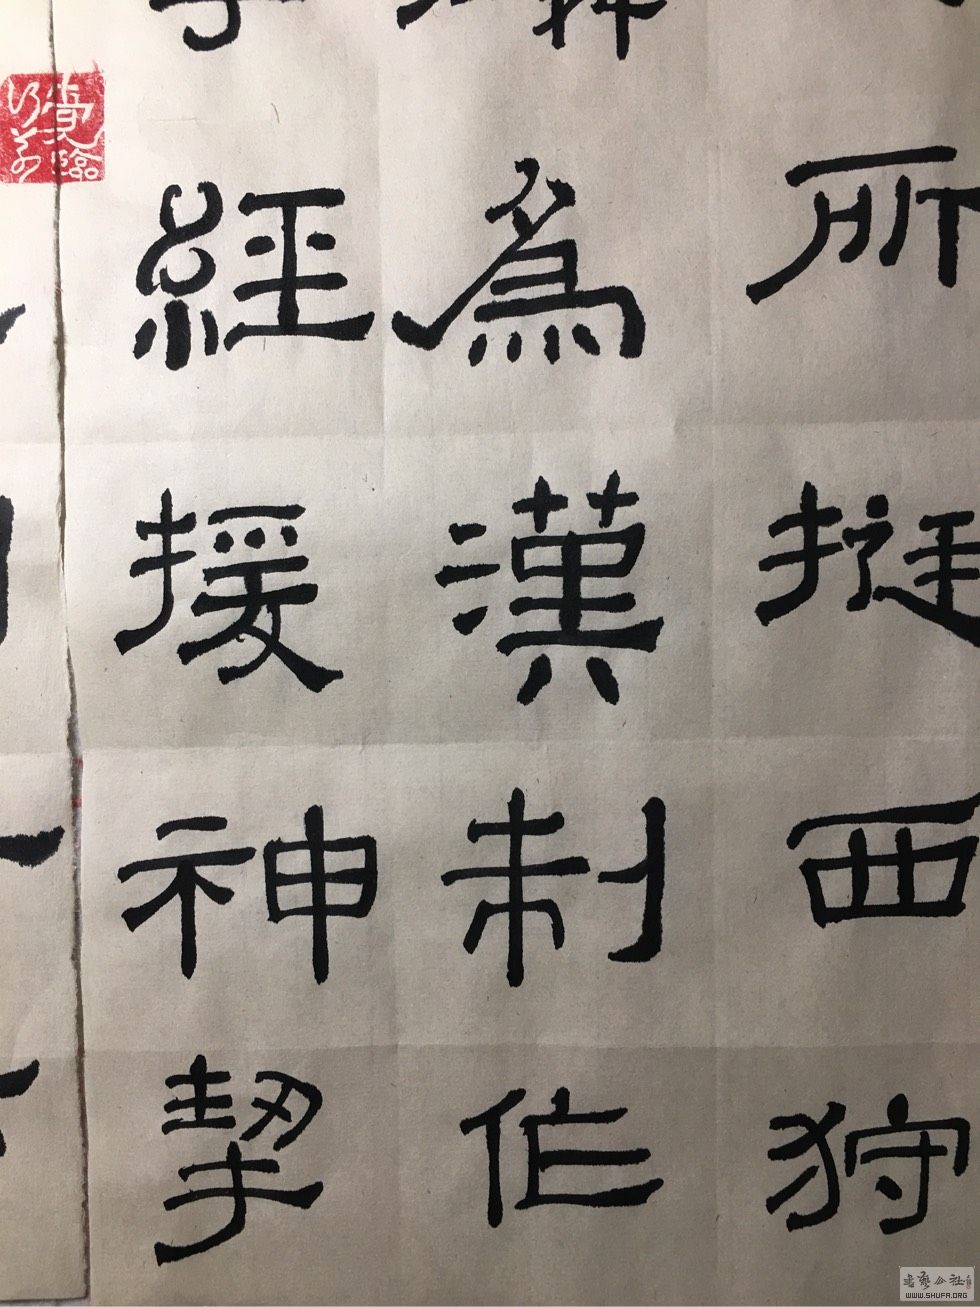 所挺西狩
為漢制作
經援神挈
書藝公社
WWW.SHUFA.ORG